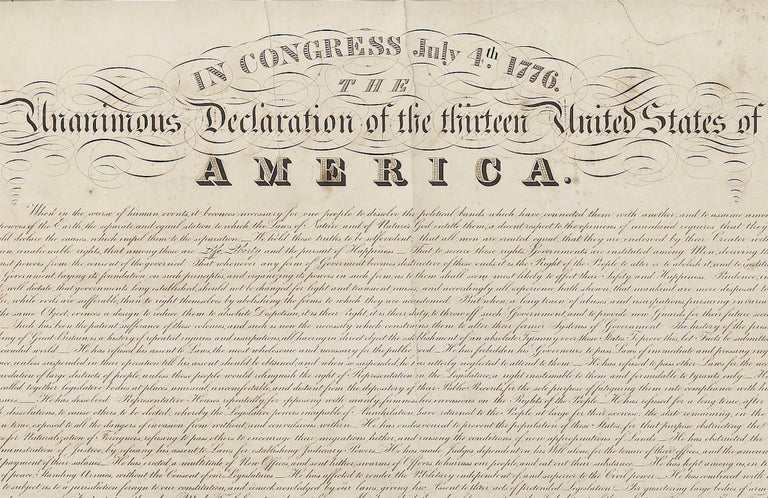 IN CONGRESS July 4th. 1776.
THE
Unanimous Declaration of the thirteen United States of
AMERICA.
When in the course of human events, it becomes necessary for one people to dissolve the political bands which have connected them with another, and to assume among
powers of the Earth, the separate and equal station to which the Laws of Nature and of Nature's God entitle them, a decent respect to the opinions of mankind requires that they
declare the causes which impel them to the separation. We hold these truths to be self evident, that all men are created equal, that they are endowed by their Creator with
unalienable rights, that among these are Life, Liberty and the pursuit of Happiness — That to secure these rights, Governments are instituted among Men, deriving
powers from the consent of the governed. That whenever any form of Government becomes destructive of these ends, it is the Right of the People to alter or to abolish it, and to
Government laying its foundation on such principles, and organizing its powers in such form, as to them shall seem most likely to effect their Safety and Happiness.
will dictate, that governments long established should not be changed for light and transient causes and accordingly all experience hath shewn, that mankind are more disposed to
while evils are sufferable, than to right themselves by abolishing the forms to which they are accustomed. But when a long train of abuses and usurpations, pursuing
the same Object, evinces a design to reduce them to absolute Despotism, it is their Right, it is their duty, to throw off such Government and to provide new Guards for their future
— Such has been the patient sufferance of these colonies, and such is now the necessity which constrains them to alter their former Systems of Government. The history of the
King of Great Britain is a history of repeated injuries and usurpations, all having in direct object the establishment of an absolute Tyranny over these States. To prove this, let Facts be submitted
world — He has refused his assent to Laws, the most wholesome and necessary for the public good — He has forbidden his Governors to pass Laws of immediate and pressing
unless suspended in their operation till his assent should be obtained, and when so suspended, he has utterly neglected to attend to them — He has refused to pass other Laws for the
of large districts of people, unless those people would relinquish the right of Representation in the Legislature, a right inestimable to them and formidable to tyrants only — He
called together legislative bodies at places unusual, uncomfortable, and distant from the depository of their Public Records, for the sole purpose of fatiguing them into compliance with his
— He has dissolved Representative Houses repeatedly, for opposing with manly firmness his invasions on the Rights of the People. He has refused for a long time, after
dissolutions, to cause others to be elected; whereby the Legislative powers, incapable of Annihilation, have returned to the People at large for their exercise; the state remaining, in the
time, exposed to all the dangers of invasion from without, and convulsions within — He has endeavoured to prevent the population of these States for that purpose obstructing the
for Naturalization of Foreigners, refusing to pass others to encourage their migrations hither, and raising the conditions of new appropriations of Lands — He has obstructed the
administration of Justice, by refusing his assent to Laws for establishing Judiciary Powers — He has made Judges dependent on his Will alone for the tenure of their offices, and the
payment of their salaries — He has erected a multitude of New Offices, and sent hither swarms of Officers to harrass our people, and eat out their substance — He has kept among us, in
peace, Standing Armies, without the Consent of our Legislatures — He has affected to render the Military independent of and superior to the Civil power — He has combined with
subject us to a jurisdiction foreign to our constitution, and unacknowledged by our laws, giving his Assent to their Acts of pretended Legislation